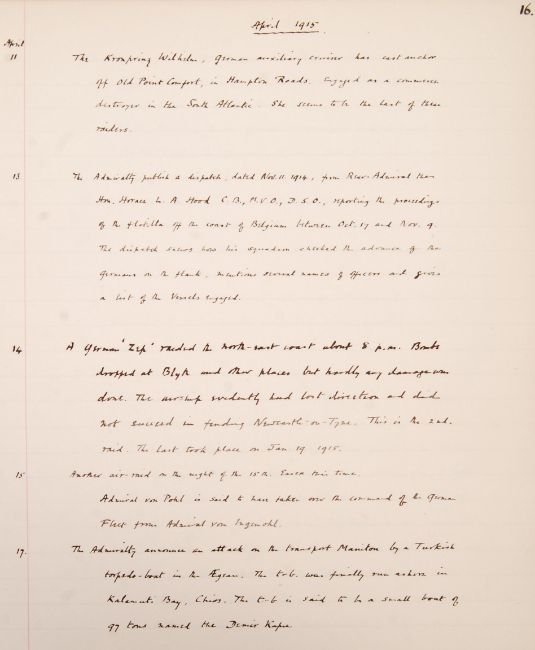 16.
April 1915
April
11 The Kronprinz Wilhelm, German auxiliary cruiser has cast anchor
off Old Point Comfort, in Hampton Roads. Engaged as a commerce
destroyer in the South Atlantic. She seems to be the last of these
raiders.
13 The Admiralty publish a dispatch, dated Nov. 11. 1914, from Rear-Admiral the
Hon. Horace L. A. Hood C.B., M.V.O., D.S.O., reporting the proceedings
of the flotilla off the coast of Belgium between Oct. 17 and Nov. 9.
The dispatch shews how his squadron checked the advance of the
Germans on the flank, mentions several names of officers and gives
a list of the vessels engaged.
14 A German 'Zep' raided the north-east coast about 8 p.m. Bombs
dropped at Blyth and other places but hardly any damage was
done. The air-ship evidently had lost direction and did
not succeed in finding Newcastle-on-Tyne. This is the 2nd.
raid. The last took place on Jan 19 1915.
15 Another air raid on the night of the 15th. Essex this time.
Admiral von Pohl is said to have taken over the command of the German
Fleet from Admiral von Ingenohl.
17. The Admiralty announce an attack on the transport Manitou by a Turkish
torpedo-boat in the Ægean. The t-b. was finally run ashore in
Kalamuti Bay, Chios. The t-b is said to be a small boat of
97 tons named the Demir Kapu